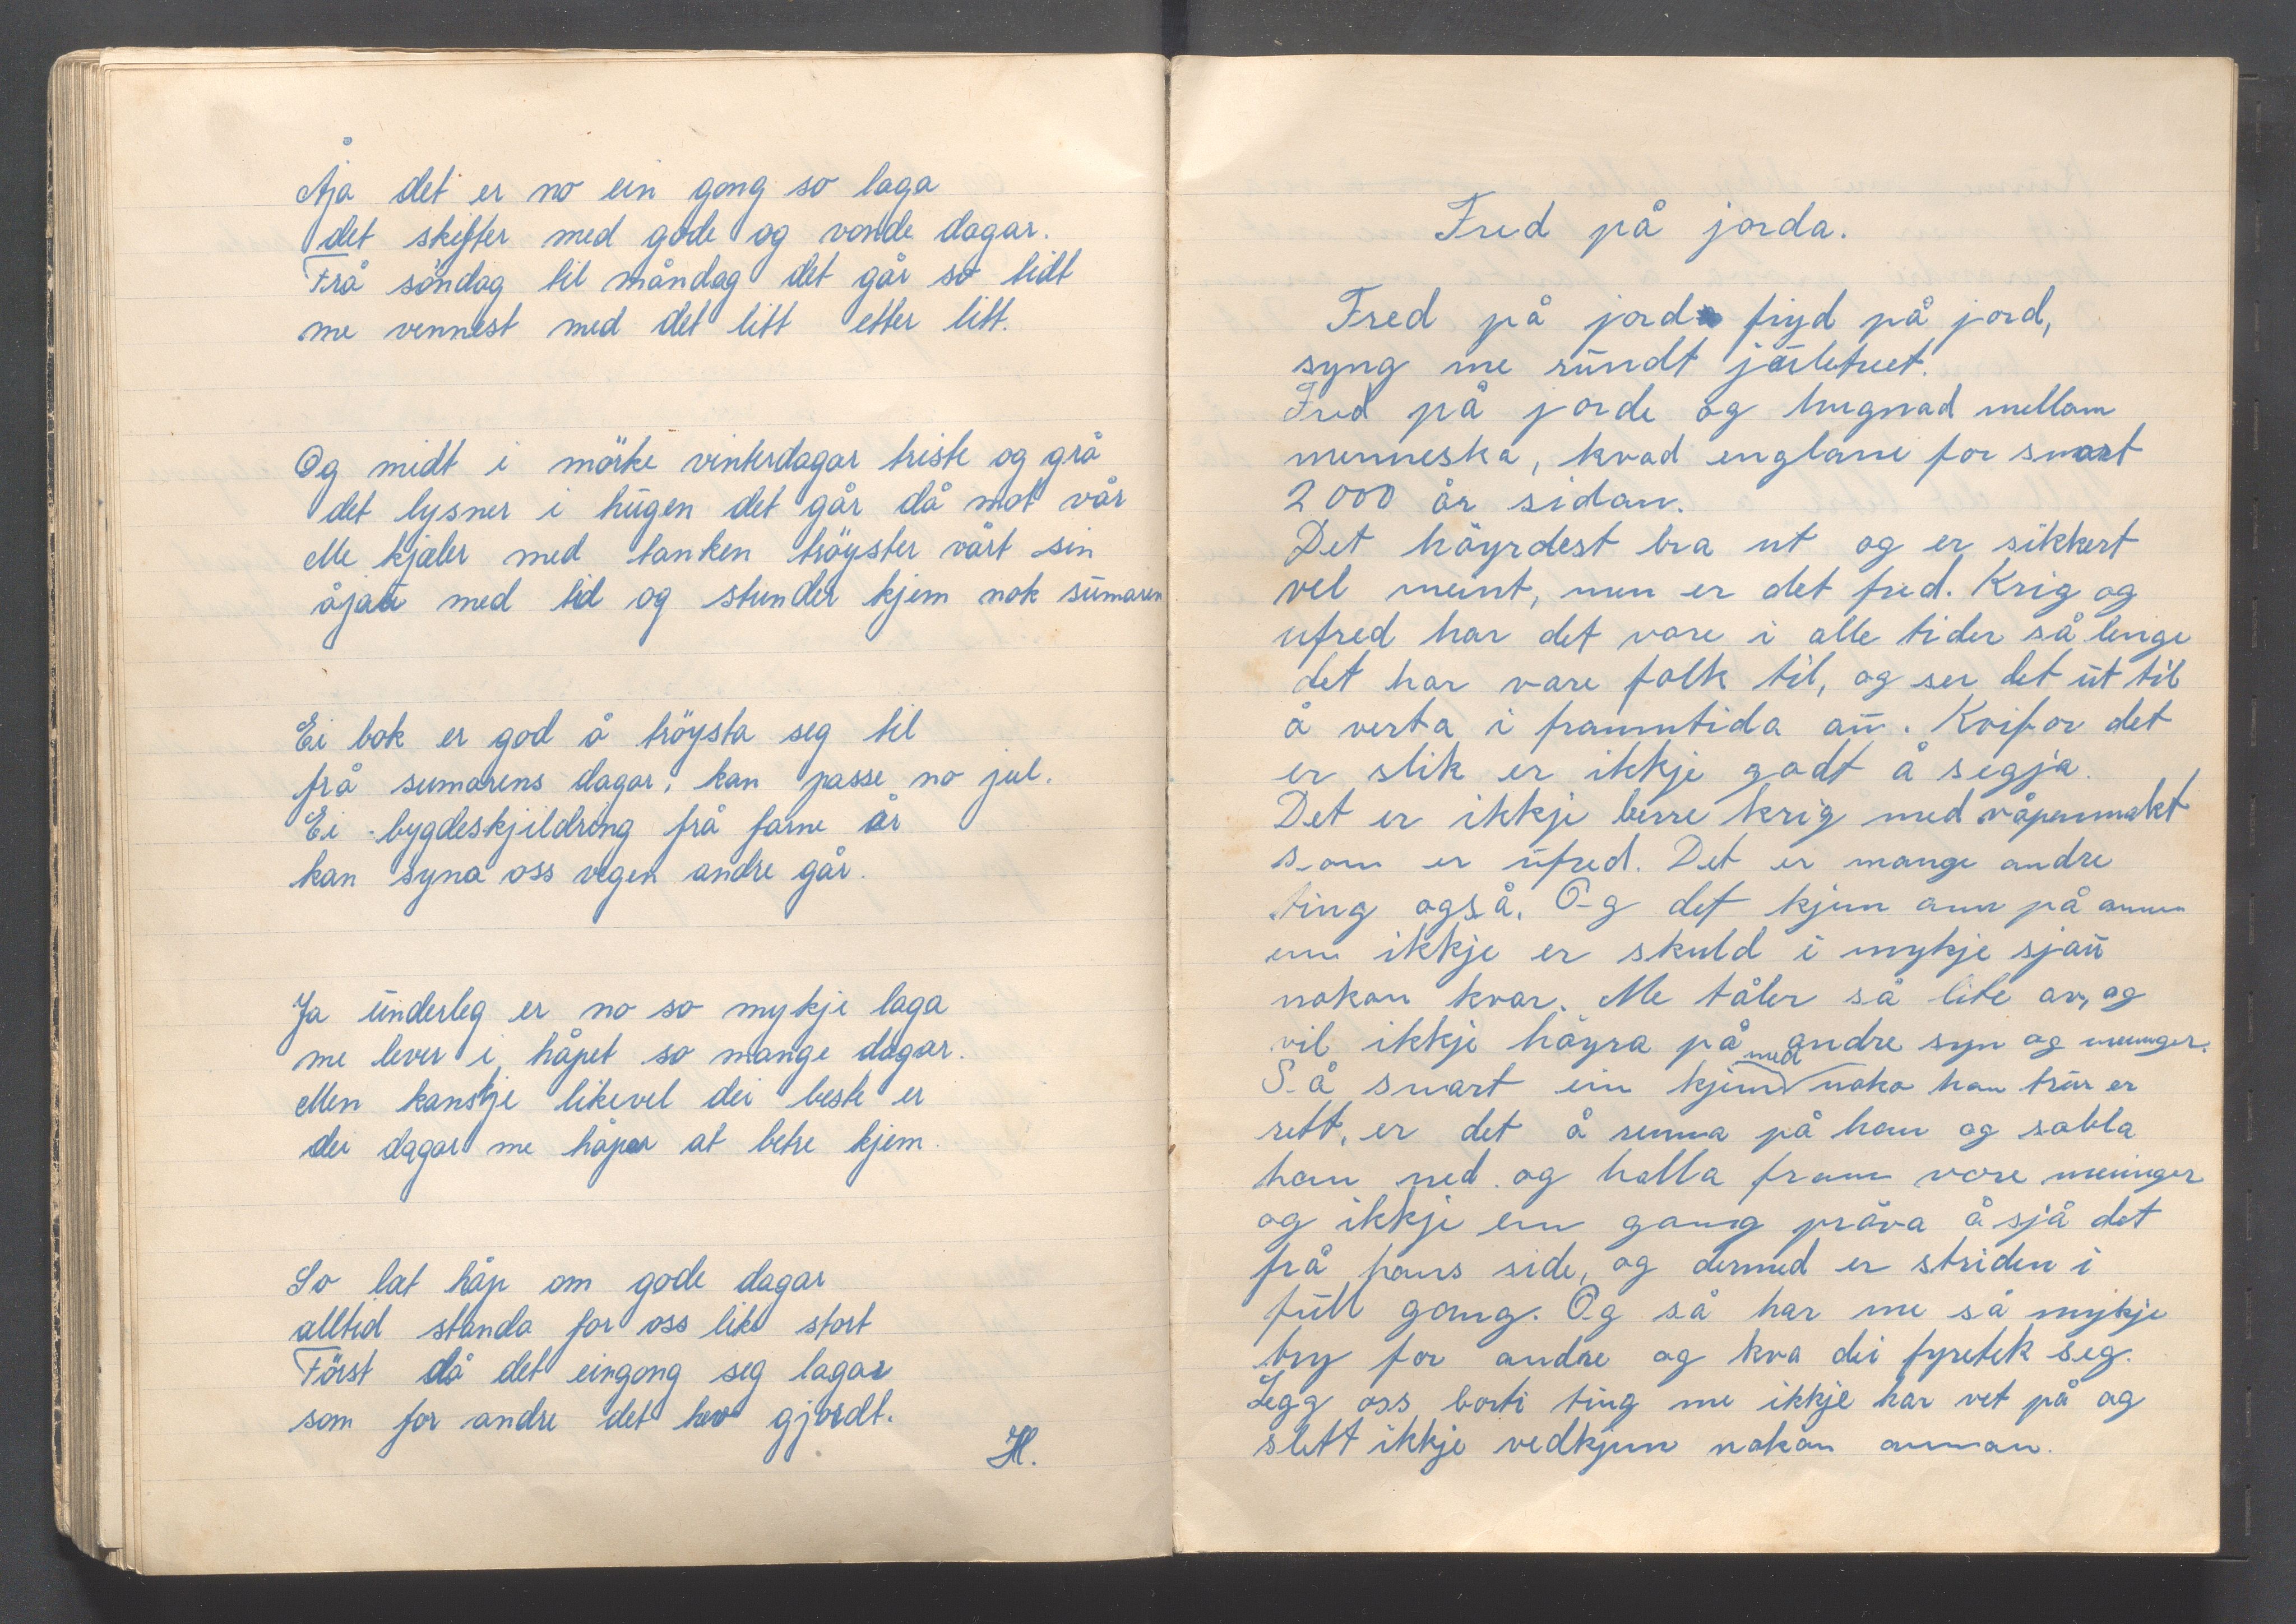 Åja det er no ein gong so laga
det skifter med gode og vonde dagar.
Frå söndag til måndag det går so tidt
me vennest med det litt etter litt.
Og midt i mörke vinterdagar triste og grå
det lysner i hugen det går då mot vår
Me kjæler med tanken tröyster vårt sin
åjau med tid og stunder kjem nok sumaren
Ei bok er god å tröysta seg til
frå sumarens dagar, kan passe no jul.
Ei bygdeskjildring frå farne år
kan syna oss vegen andre går.
Ja underleg er no so mykje laga
me lever i håpet so mange dagar.
Men kanskje likevel dei beste er
dei dagar me håper at betre kjem.
So lat håp om gode dagar
alltid standa for oss like stort
Först då det eingong seg lagar
som for andre det hev gjordt.
H.
Fred på jorda.
Fred på jord fryd på jord,
syng me rundt juletreet.
Fred på jorde og hugnad mellom
menneska, kvad englane for snart
2000 år sidan.
Det höyrdest bra ut og er sikkert
vel meint, men er det fred. Krig og
ufred har det vore i alle tider så lenge
det har vore folk til, og ser det ut til
å verta i frammtida au. Kvifor det
er slik er ikkje godt å segja.
Det er ikkje berre krig med våpenmakt
som er ufred. Det er mange andre
ting også. Og det kjem ann på
em ikkje er skuld i mykje sjau
nokon kvar. Me tåler så lite av, og
vil ikkje höyra på andre syn og meninger.
Så snart ein kjem med noko han trur er
rett, er det å renna på han og sabla
han ned og halla fram vore meninger
og ikkje ein gong pröva å sjå det
frå hans side, og dermed er striden i
full gang. Og så har me så mykje
bry for andre og kva dei fyretek seg.
Legg oss borti ting me ikkje har vet på og
slett ikkje vedkjem nokon annan.